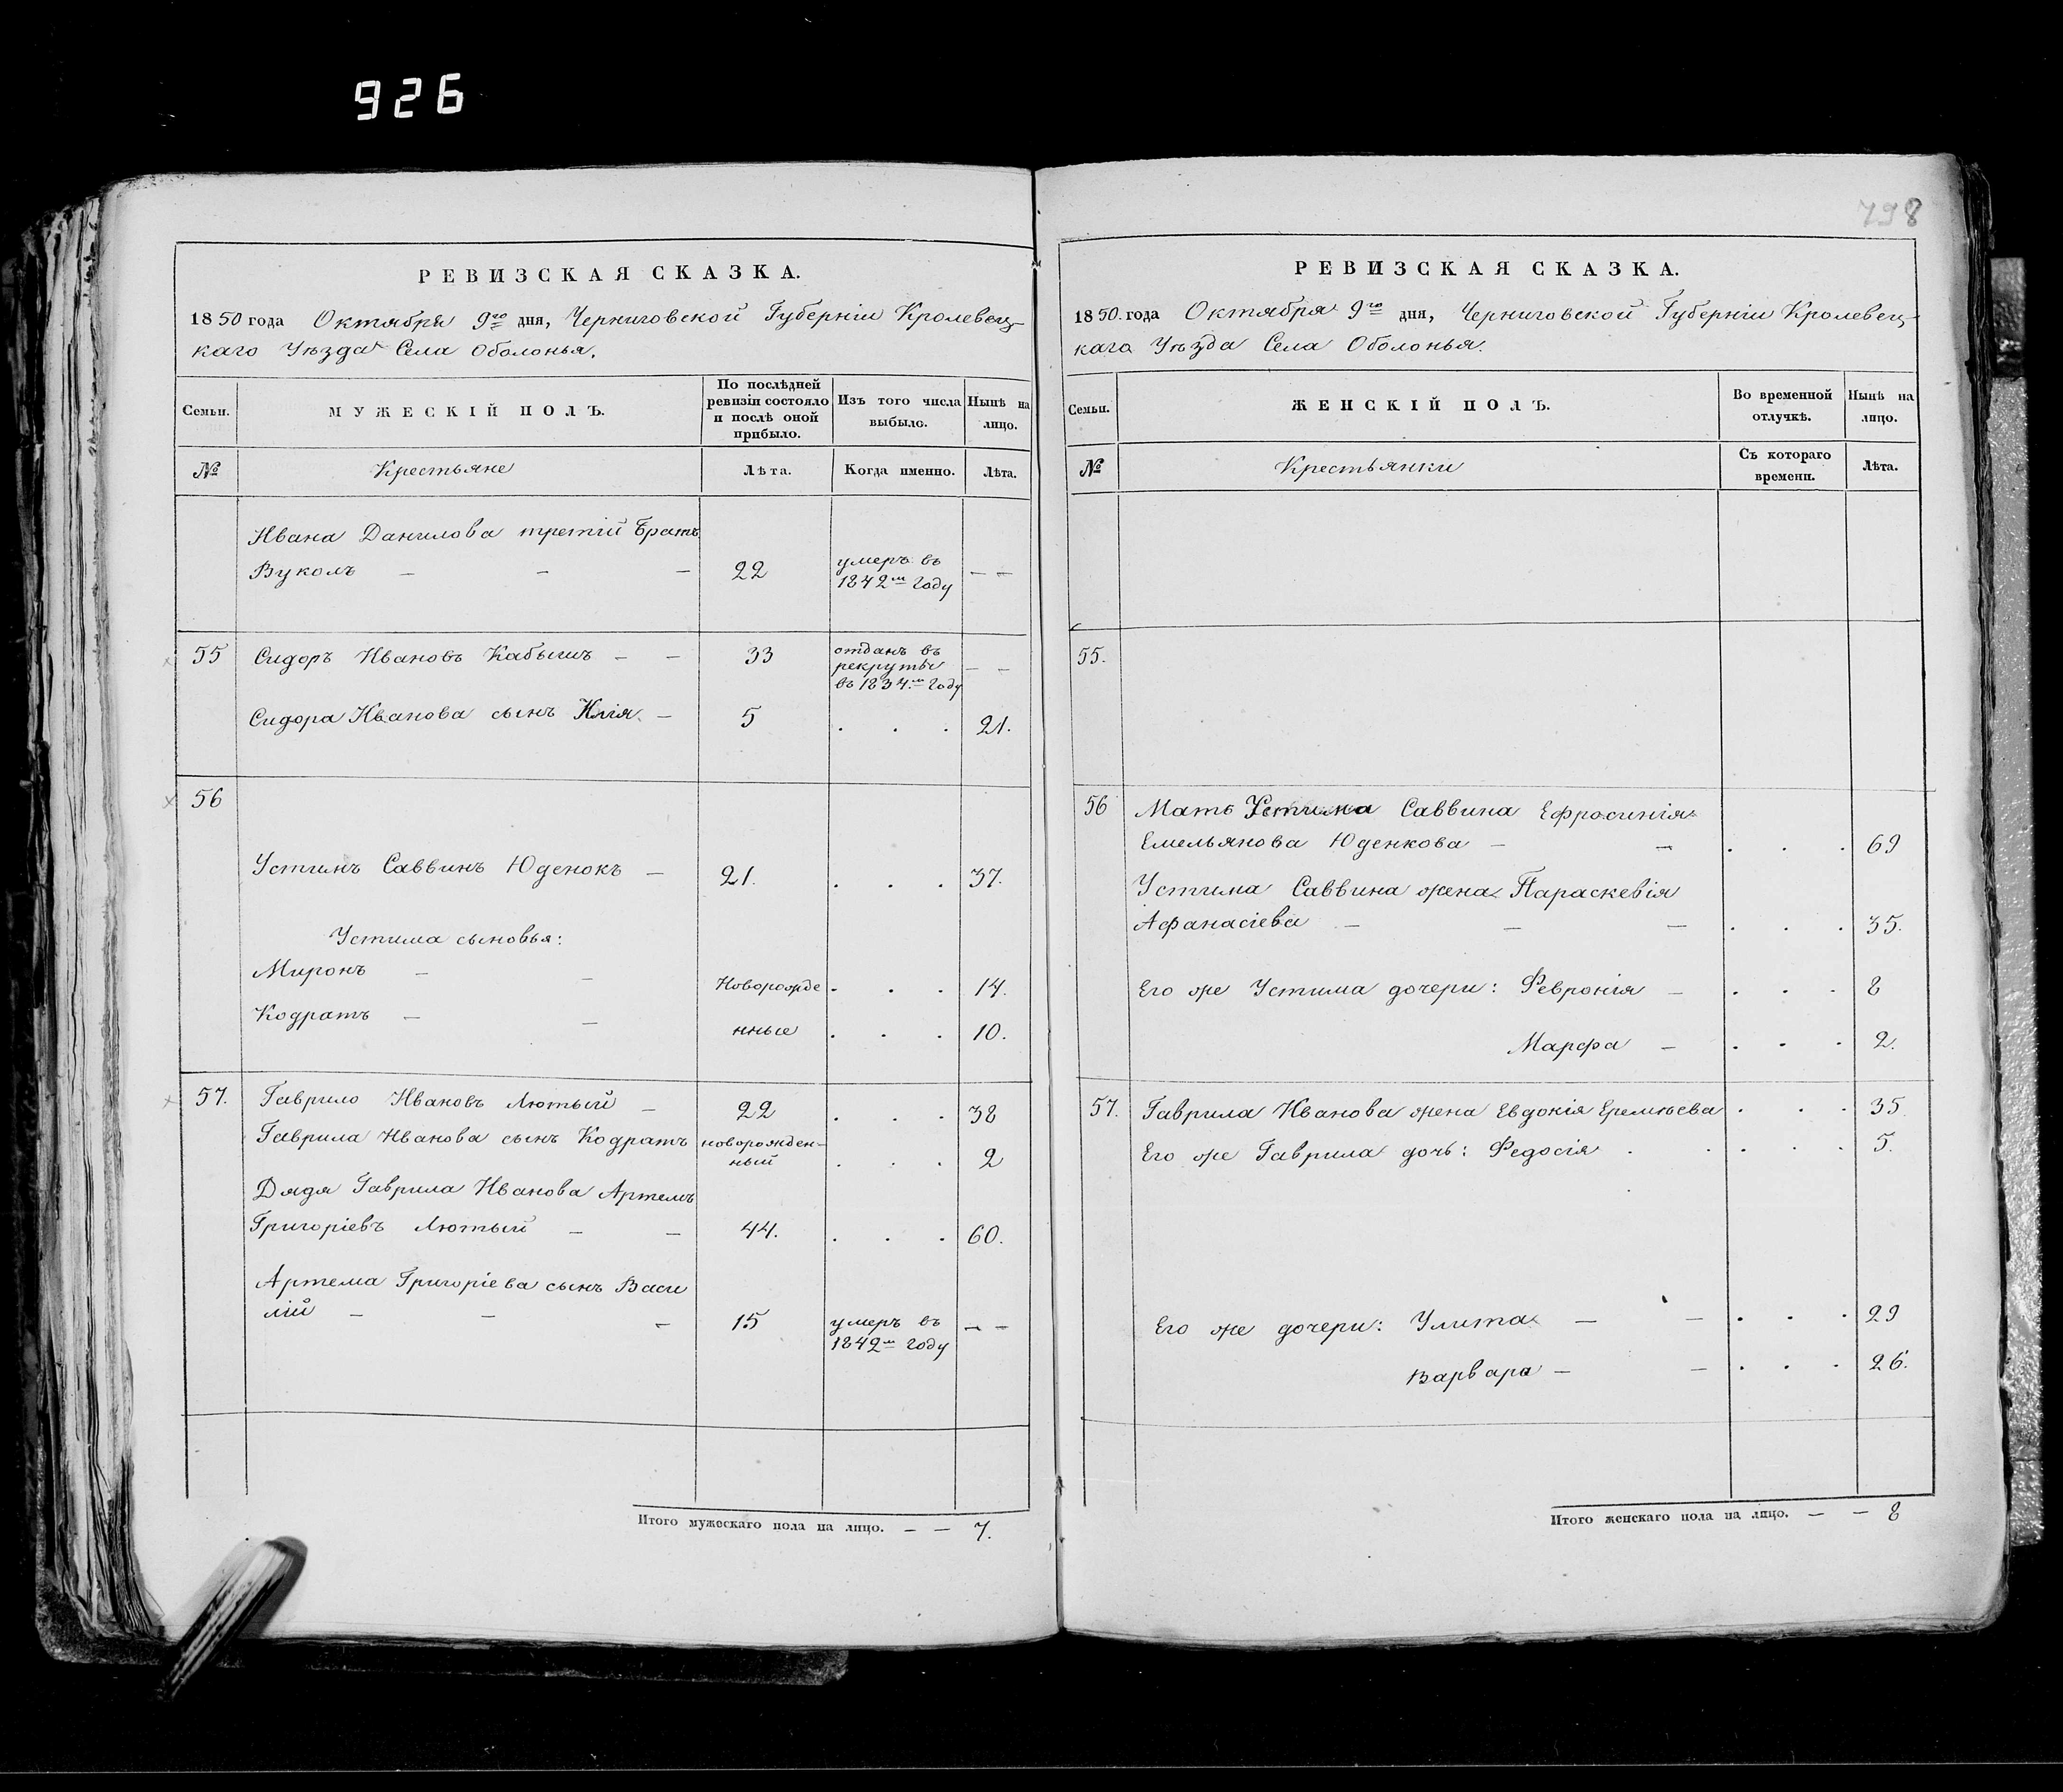 926
798
РЕВИЗСКАЯ СКАЗКА.
1850 года Октября 9го дня, Черниговской Губернiи Кролевец-
каго Уѣзда Села Оболонья.
Семьи.
МУЖЕСКІЙ ПОЛЪ.
По послѣдней
ревизіи состояло
и послѣ оной
прибыло.
Изъ того числа
выбыло.
Нынѣ на
лицо.
№
Крестьяне
Лѣта.
Когда именно.
Лѣта.
Ивана Данилова третій Братъ
Вуколъ — — — 22 умеръ въ — —
1842м году
55 Сидоръ Ивановъ Кабышъ — — 33 отданъ въ — —
рекруты
въ 1834.м году
Сидора Иванова сынъ Илія — 5 . . . 21.
56
Устинъ Саввинъ Юденокъ — 21. . . . 37.
Устима сыновья:
Миронъ — — Новорожде . . . 14.
Кодратъ — — нные . . . 10.
57. Гаврило Ивановъ Лютый — 22 . . . 38
Гаврила Иванова сынъ Кодратъ новорожден-
ный . . . 2
Дядя Гаврила Иванова Артемъ
Григоріевъ Лютый — — 44. . . . 60.
Артема Григоріева сынъ Васи
лій — — — 15 умеръ въ — —
1842м году
Итого мужескаго пола на лицо. — — 7.
РЕВИЗСКАЯ СКАЗКА.
1850. года Октября 9го дня, Черниговской Губерніи Кролевец-
каго Уѣзда Села Оболонья.
Семьи.
ЖЕНСКІЙ ПОЛЪ.
Во временной
отлучкѣ.
Нынѣ на
лицо.
№
Крестьянки
Съ котораго
времени.
Лѣта.
55.
56 Мать Устима Саввина Ефросинія
Емельянова Юденкова — — . . . 69
Устима Саввина жена Параскевія
Афанасіева — — — . . . 35.
Его же Устима дочери: Февронія — . . . 8
Марфа — . . . 2.
57. Гаврила Иванова жена Евдокія Еремѣева . . . 35
Его же Гаврила дочь: Федосія . . . . . 5.
Его же дочери: Улита — — . . . 29
Варвара — — . . . 26.
Итого женскаго пола на лицо. — — 8